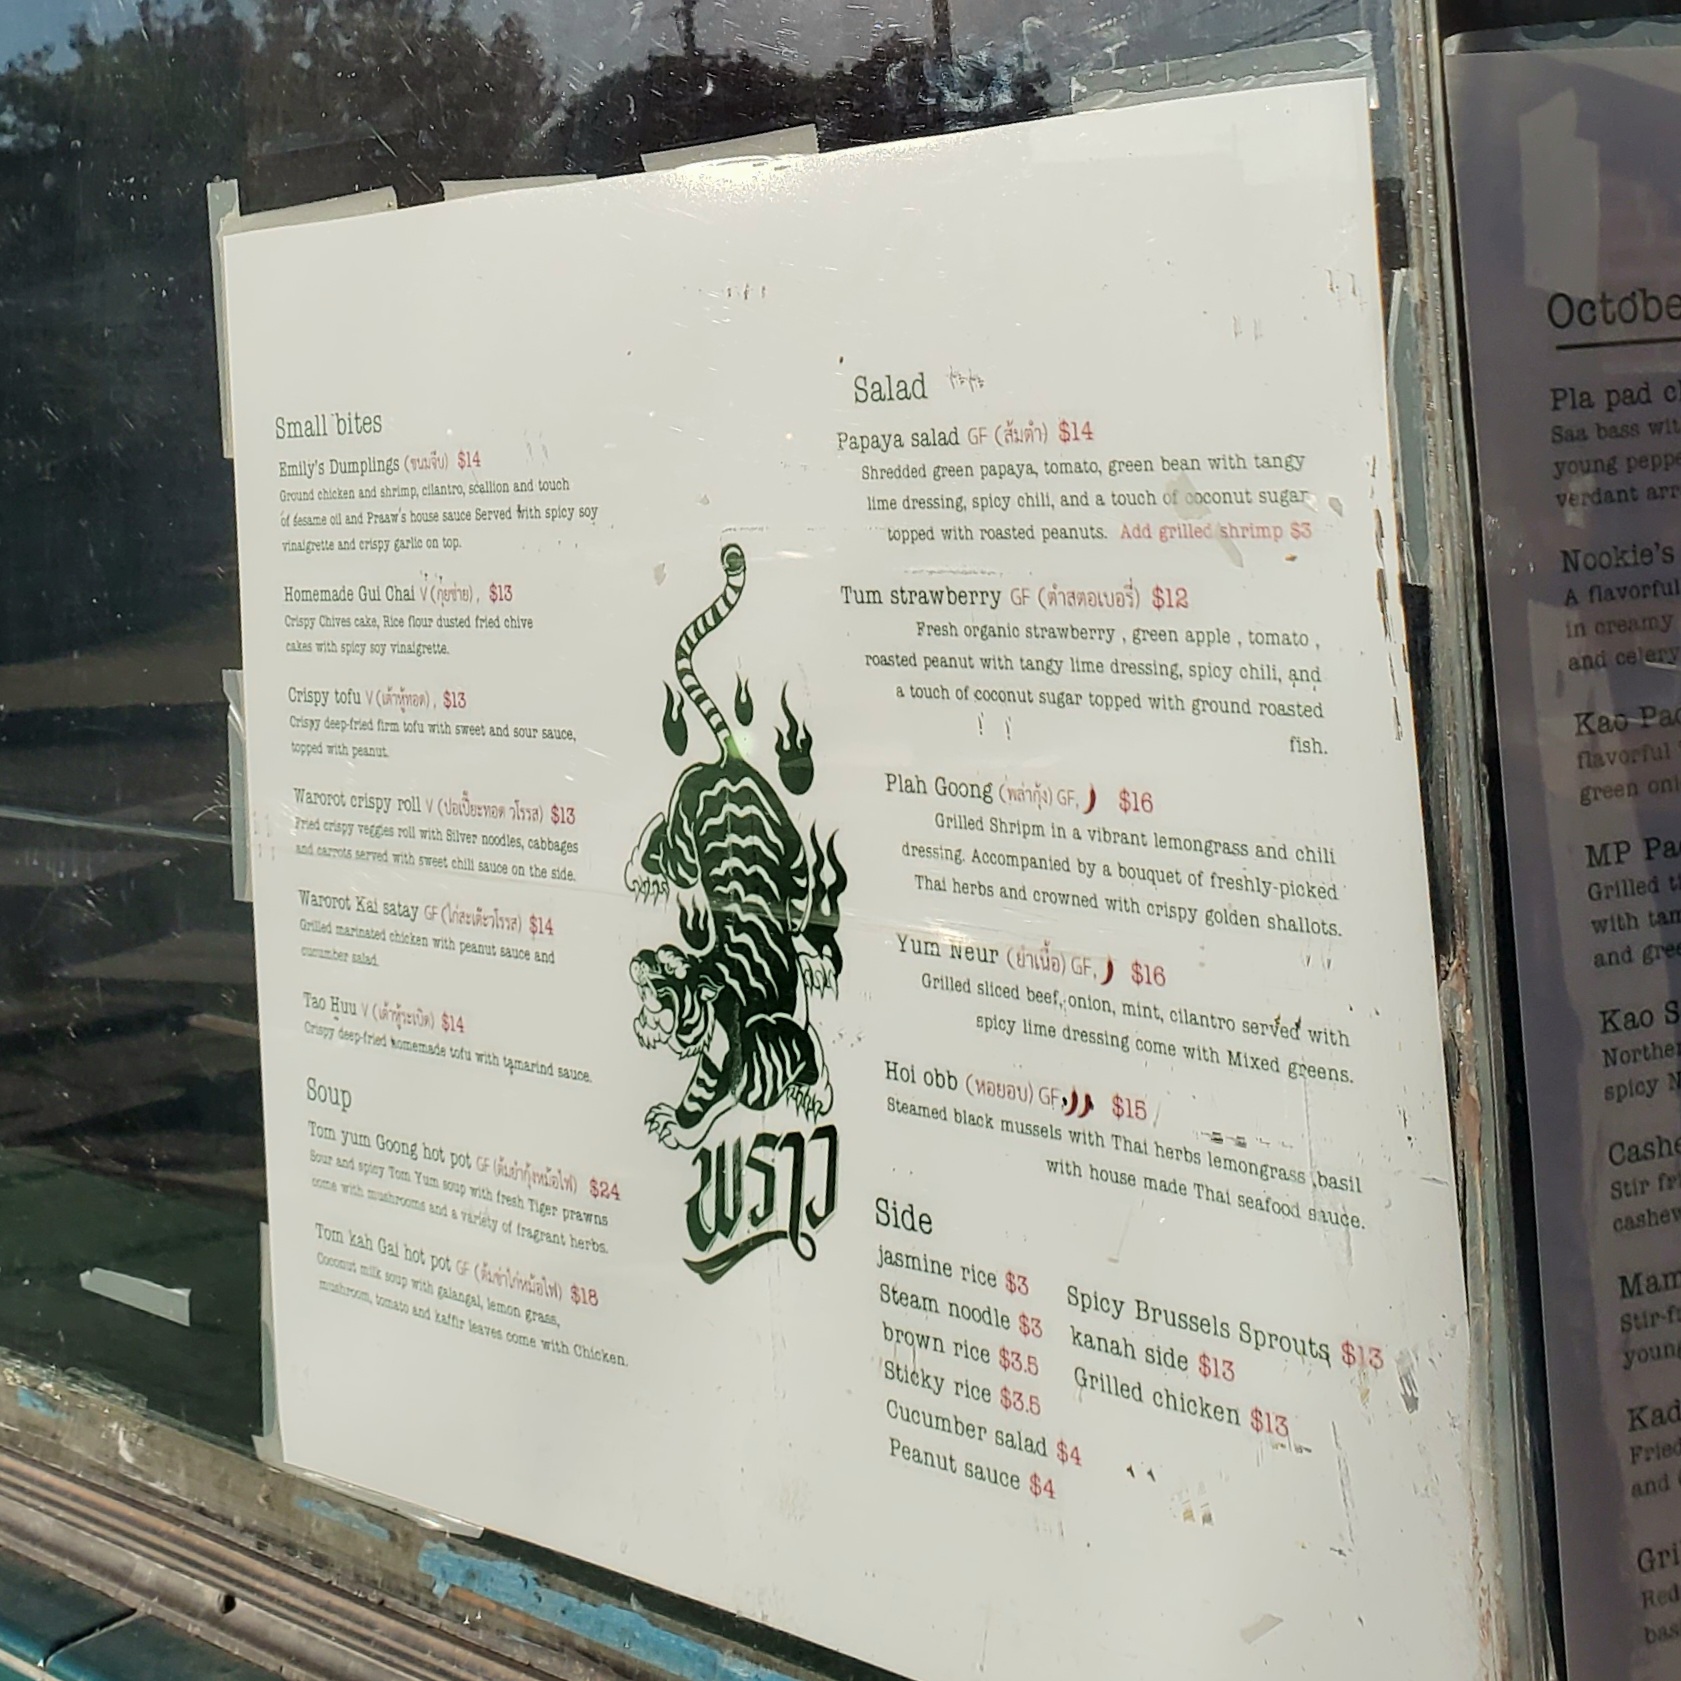 Small bites
Emily's Dumplings (ขนมจีบ) $14
Ground chicken and shrimp, cilantro, scallion and touch
of sesame oil and Praaw's house sauce Served with spicy soy
vinaigrette and crispy garlic on top.
Homemade Gui Chai V (กุยช่าย), $13
Crispy Chives cake, Rice flour dusted fried chive
cakes with spicy soy vinaigrette.
Crispy tofu V (เต้าหู้ทอด), $13
Crispy deep-fried firm tofu with sweet and sour sauce,
topped with peanut.
Warorot crispy roll V (ปอเปี๊ยะทอด วโรรส) $13
Fried crispy veggies roll with Silver noodles, cabbages
and carrots served with sweet chili sauce on the side.
Warorot Kai satay GF (ไก่สะเต๊ะวโรรส) $14
Grilled marinated chicken with peanut sauce and
cucumber salad.
Tao Huu V (เต้าหู้ระเบิด) $14
Crispy deep-fried homemade tofu with tamarind sauce.
Soup
Tom yum Goong hot pot GF (ต้มยำกุ้งหม้อไฟ) $24
Sour and spicy Tom Yum soup with fresh Tiger prawns
come with mushrooms and a variety of fragrant herbs.
Tom kah Gai hot pot GF (ต้มข่าไก่หม้อไฟ) $18
Coconut milk soup with galangal, lemon grass,
mushroom, tomato and kaffir leaves come with Chicken.
พราว
Salad
Papaya salad GF (ส้มตำ) $14
Shredded green papaya, tomato, green bean with tangy
lime dressing, spicy chili, and a touch of coconut sugar
topped with roasted peanuts. Add grilled shrimp $3
Tum strawberry GF (ตำสตอเบอรี่) $12
Fresh organic strawberry , green apple , tomato ,
roasted peanut with tangy lime dressing, spicy chili, and
a touch of coconut sugar topped with ground roasted
fish.
Plah Goong (พล่ากุ้ง) GF, $16
Grilled Shripm in a vibrant lemongrass and chili
dressing. Accompanied by a bouquet of freshly-picked
Thai herbs and crowned with crispy golden shallots.
Yum Neur (ยำเนื้อ) GF, $16
Grilled sliced beef, onion, mint, cilantro served with
spicy lime dressing come with Mixed greens.
Hoi obb (หอยอบ) GF, $15
Steamed black mussels with Thai herbs lemongrass ,basil
with house made Thai seafood sauce.
Side
jasmine rice $3
Steam noodle $3
brown rice $3.5
Sticky rice $3.5
Cucumber salad $4
Peanut sauce $4
Spicy Brussels Sprouts $13
kanah side $13
Grilled chicken $13
Octobe
Pla pad c
Saa bass wit
young peppe
verdant arr
Nookie's
A flavorful
in creamy
and celery
Kao Pad
flavorful
green oni
MP Pa
Grilled t
with tam
and gree
Kao S
Norther
spicy N
Cashe
Stir fri
cashew
Mam
Stir-f
young
Kad
Fried
and
Gri
Red
bas